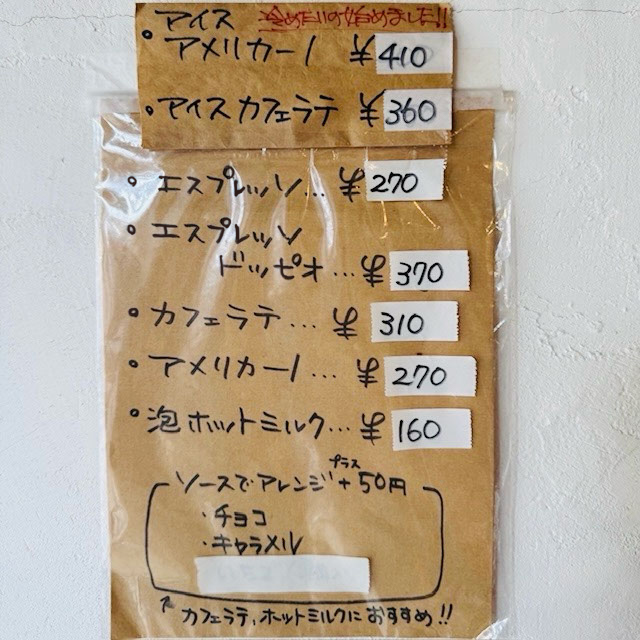 アイス 冷めたいの始めました!!
・アメリカーノ ¥410
・アイスカフェラテ ¥360
・エスプレッソ… ¥270
・エスプレッソ
ドッピオ… ¥370
・カフェラテ… ¥310
・アメリカーノ… ¥270
・泡ホットミルク… ¥160
プラス
ソースでアレンジ+50円
・チョコ
・キャラメル
↑カフェラテ、ホットミルクにおすすめ!!